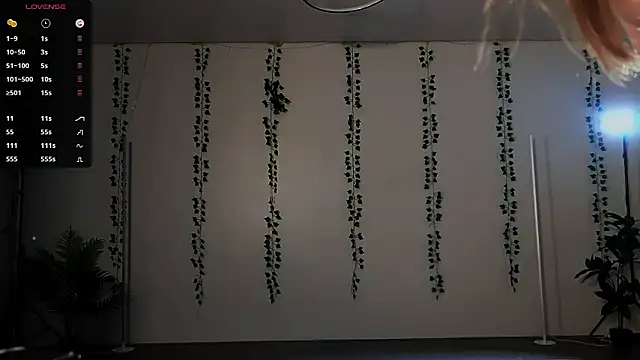 LOVENSE
1-9 1s
10-50 3s
51-100 5s
101-500 10s
≥501 15s
11 11s
55 55s
111 111s
555 555s